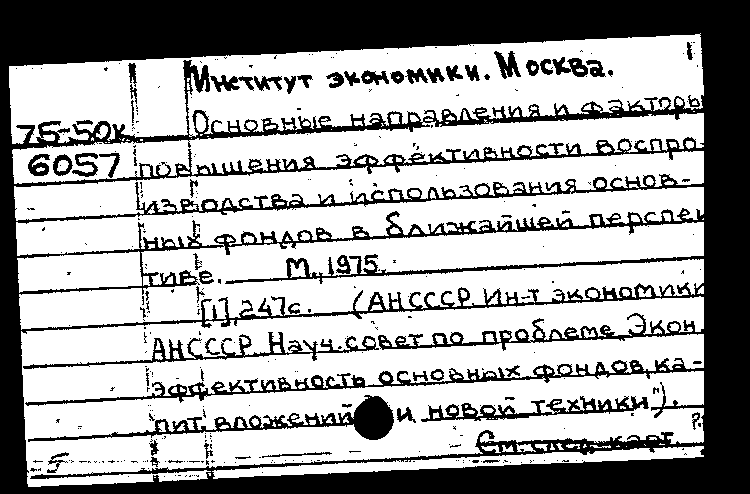 Институт экономики. Москва.
75-50к Основные направления и факторы
6057 повышения эффективности воспро-
изводства и использования основ-
ных фондов в ближайшей перспек
тиве. М., 1975.
[1], 247с. (АНСССР. Ин-т экономики
АНСССР. Науч. совет по проблеме „Экон.
эффективность основных фондов, ка-
пит. вложений и новой техники").
См. след. карт.
5